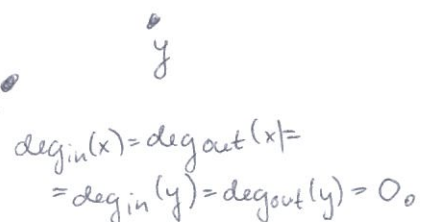 y
deg_in(x) = deg_out(x) =
= deg_in(y) = deg_out(y) = 0.